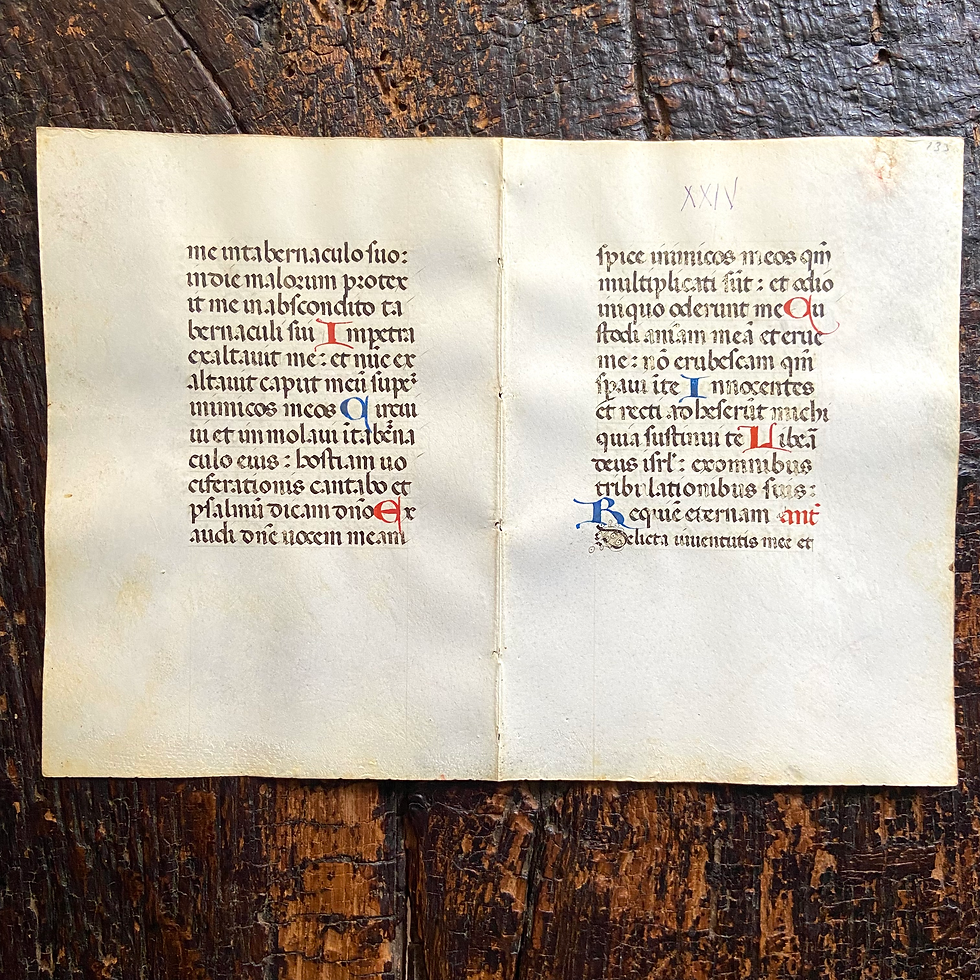 me intabernaculo suo:
in die malorum protex
it me inabscondito ta
bernaculi sui Impetra
exaltauit me: et nūc ex
altauit caput meū supͬ
inimicos meos Circui
ui et immolaui ītab̄na
culo eius: hostiam uo
ciferationis cantabo et
psalmū dicam dn̄o Ex
audi dn̄e uocem meam
XXIV
133
spice inimicos meos qm̄
multiplicati sūt: et odio
iniquo oderunt me Cu
stodi aniam meā et erue
me: nō erubescam qm̄
sp̄aui īte Innocentes
et recti adheserūt michi
quia sustinui te Libeā
deus isrl̄: exomnibus
tribulationibus suis:
Requiē eternam ant̄
Delicta iuuentutis mee et